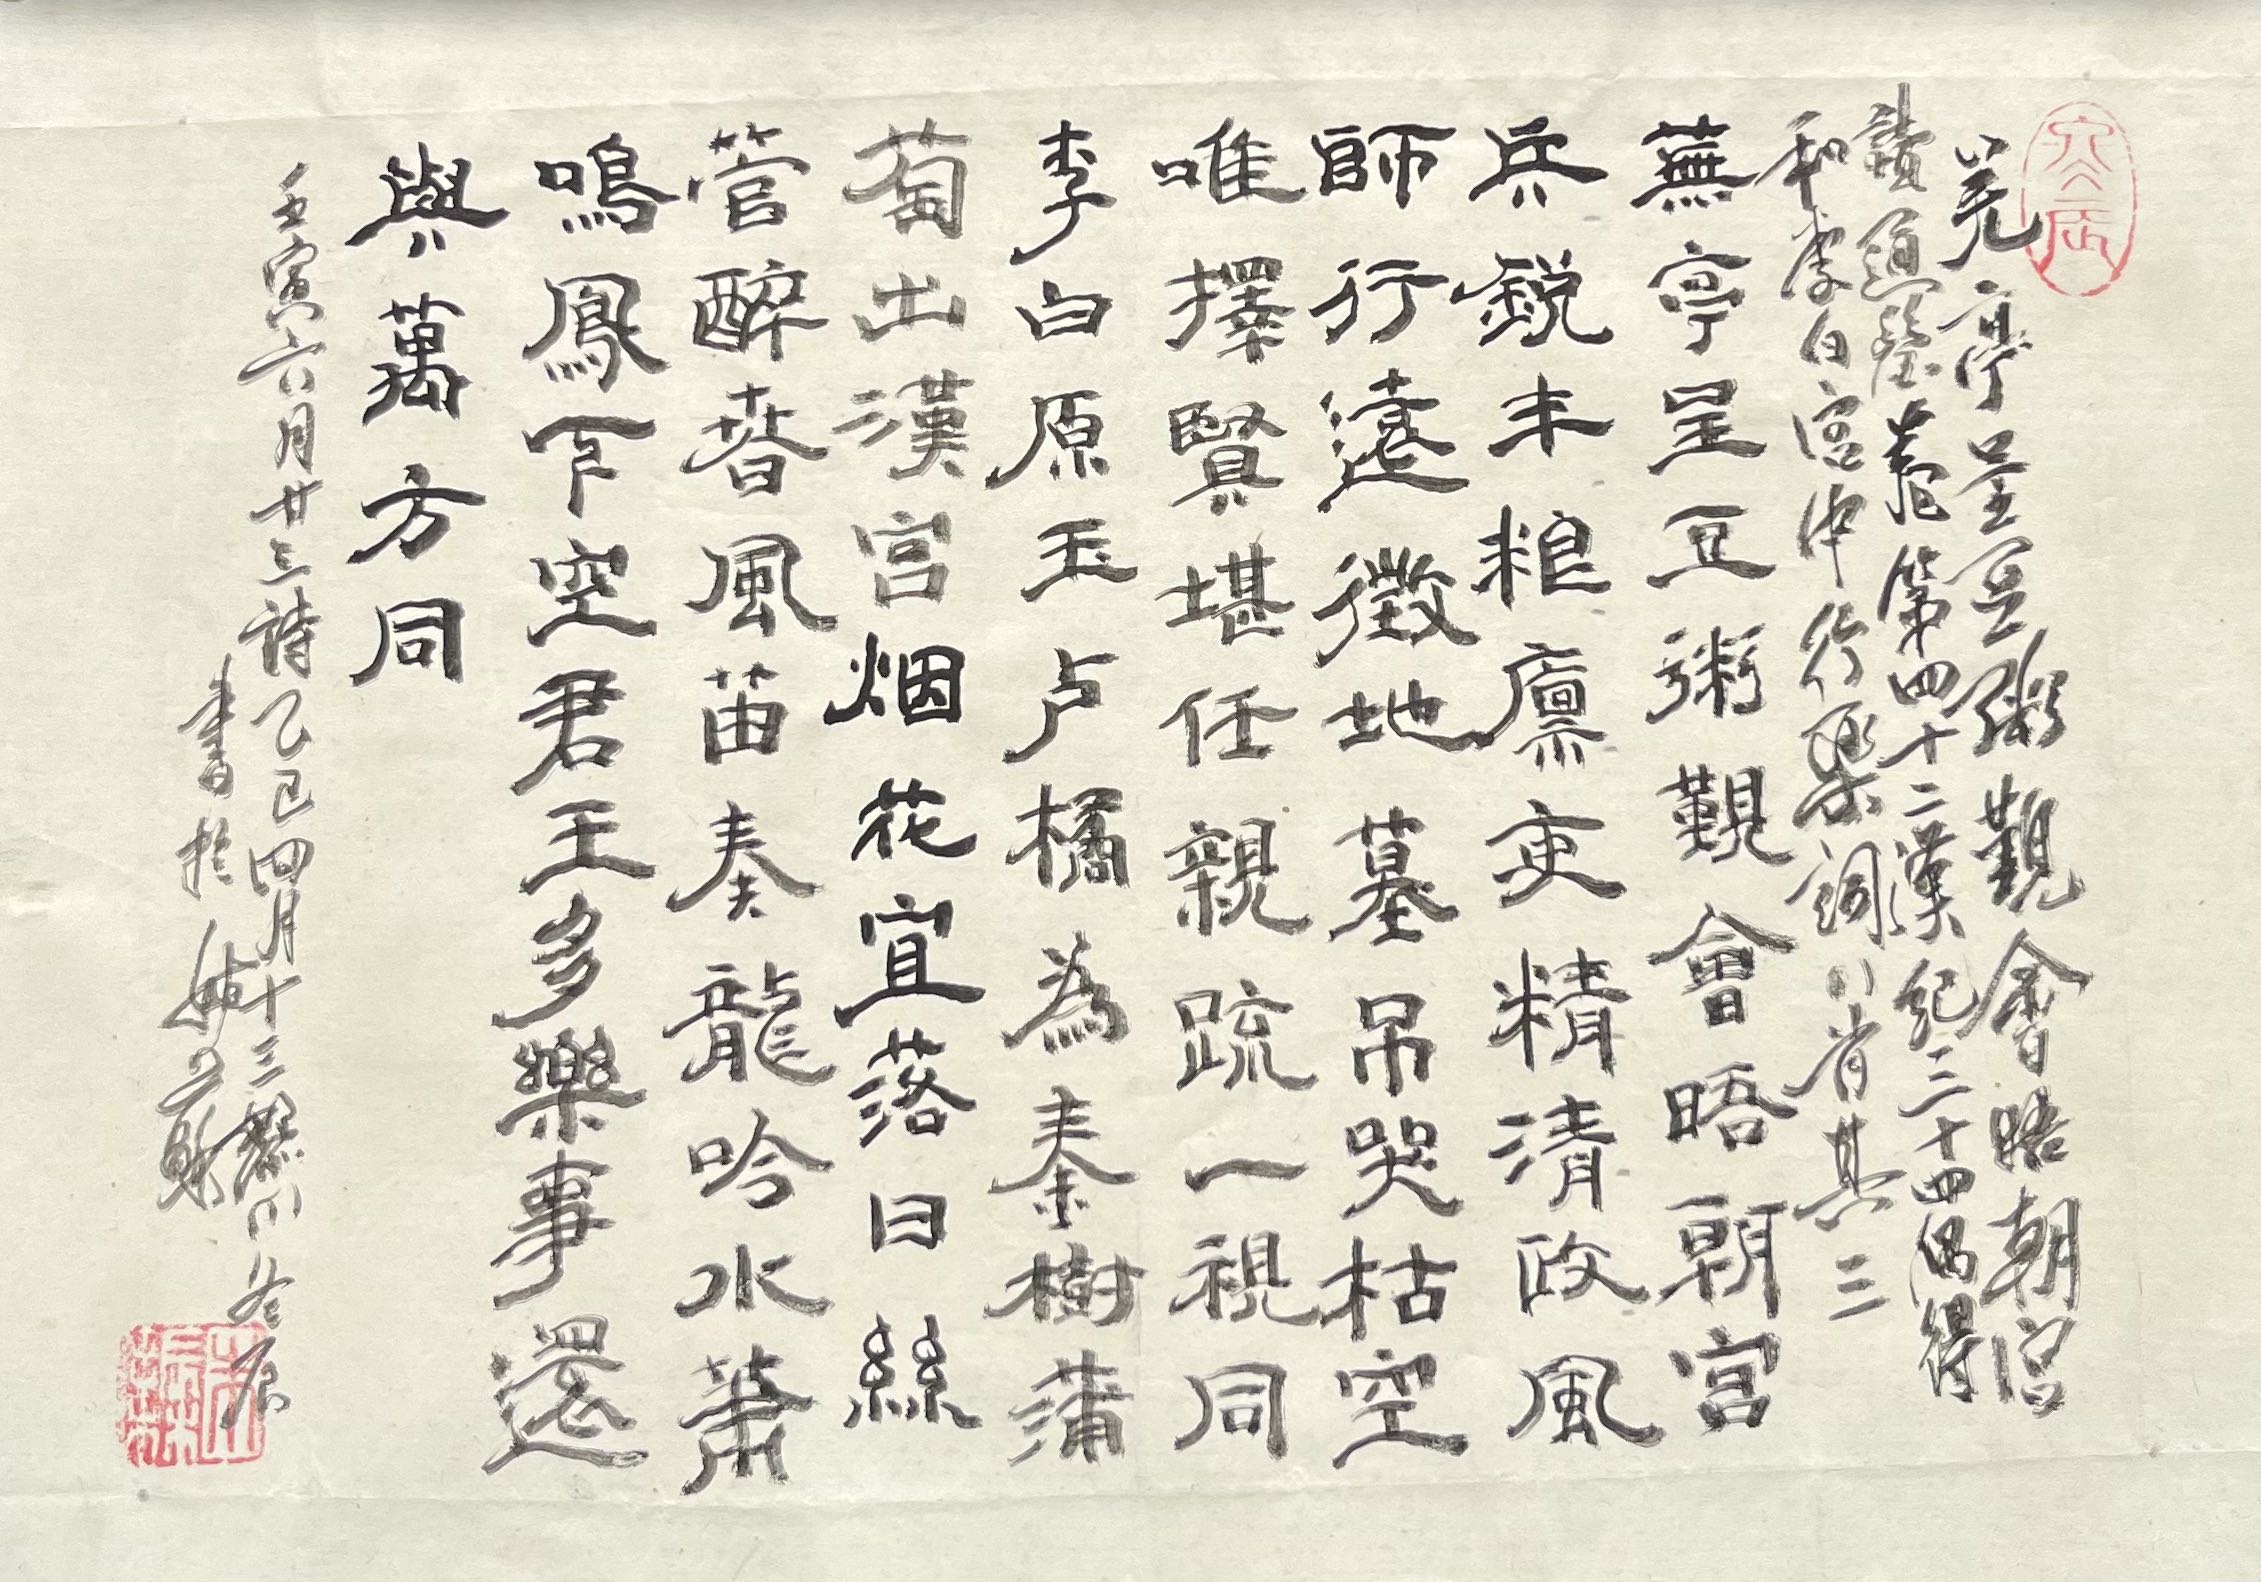 亭呈豆粥觀會晤朝宮
讀通鑒卷第四十二漢紀三十四偶得
和李白宮中行樂詞八首其三
蕪亭呈豆粥觀會晤朝宮
兵銳丰粮廪吏精清政風
師行遠徵地墓吊哭枯空
唯擇賢堪任親疏一視同
李白原玉卢橘為秦樹蒲
萄出漢宮烟花宜落日絲
管醉春風笛奏龍吟水簫
鳴鳳下空君王多樂事還
與萬方同
壬寅六月廿三詩乙巳四月十三
書於